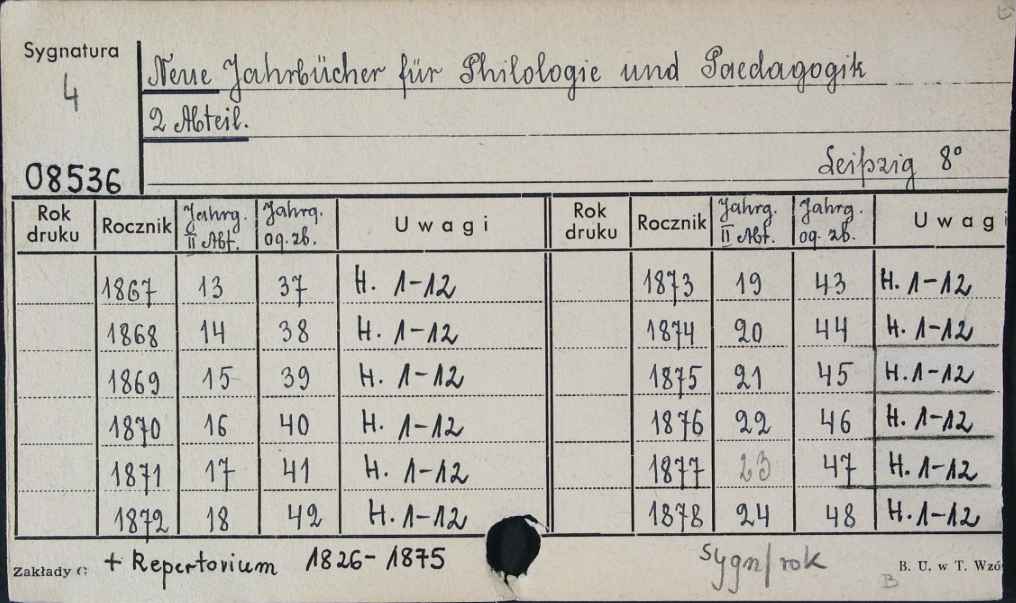 Sygnatura
4
08536
Neue Jahrbücher für Philologie und Paedagogik
2 Abteil.
Leipzig 8°
Rok druku Rocznik Jahrg. II Abt. Jahrg. og. zb. Uwagi Rok druku Rocznik Jahrg. II Abt. Jahrg. og. zb. Uwagi
1867 13 37 H. 1-12 1873 19 43 H. 1-12
1868 14 38 H. 1-12 1874 20 44 H. 1-12
1869 15 39 H. 1-12 1875 21 45 H. 1-12
1870 16 40 H. 1-12 1876 22 46 H. 1-12
1871 17 41 H. 1-12 1877 23 47 H. 1-12
1872 18 42 H. 1-12 1878 24 48 H. 1-12
+ Repertorium 1826-1875 Sygn/rok
Zakłady G B B. U. w T. Wzó